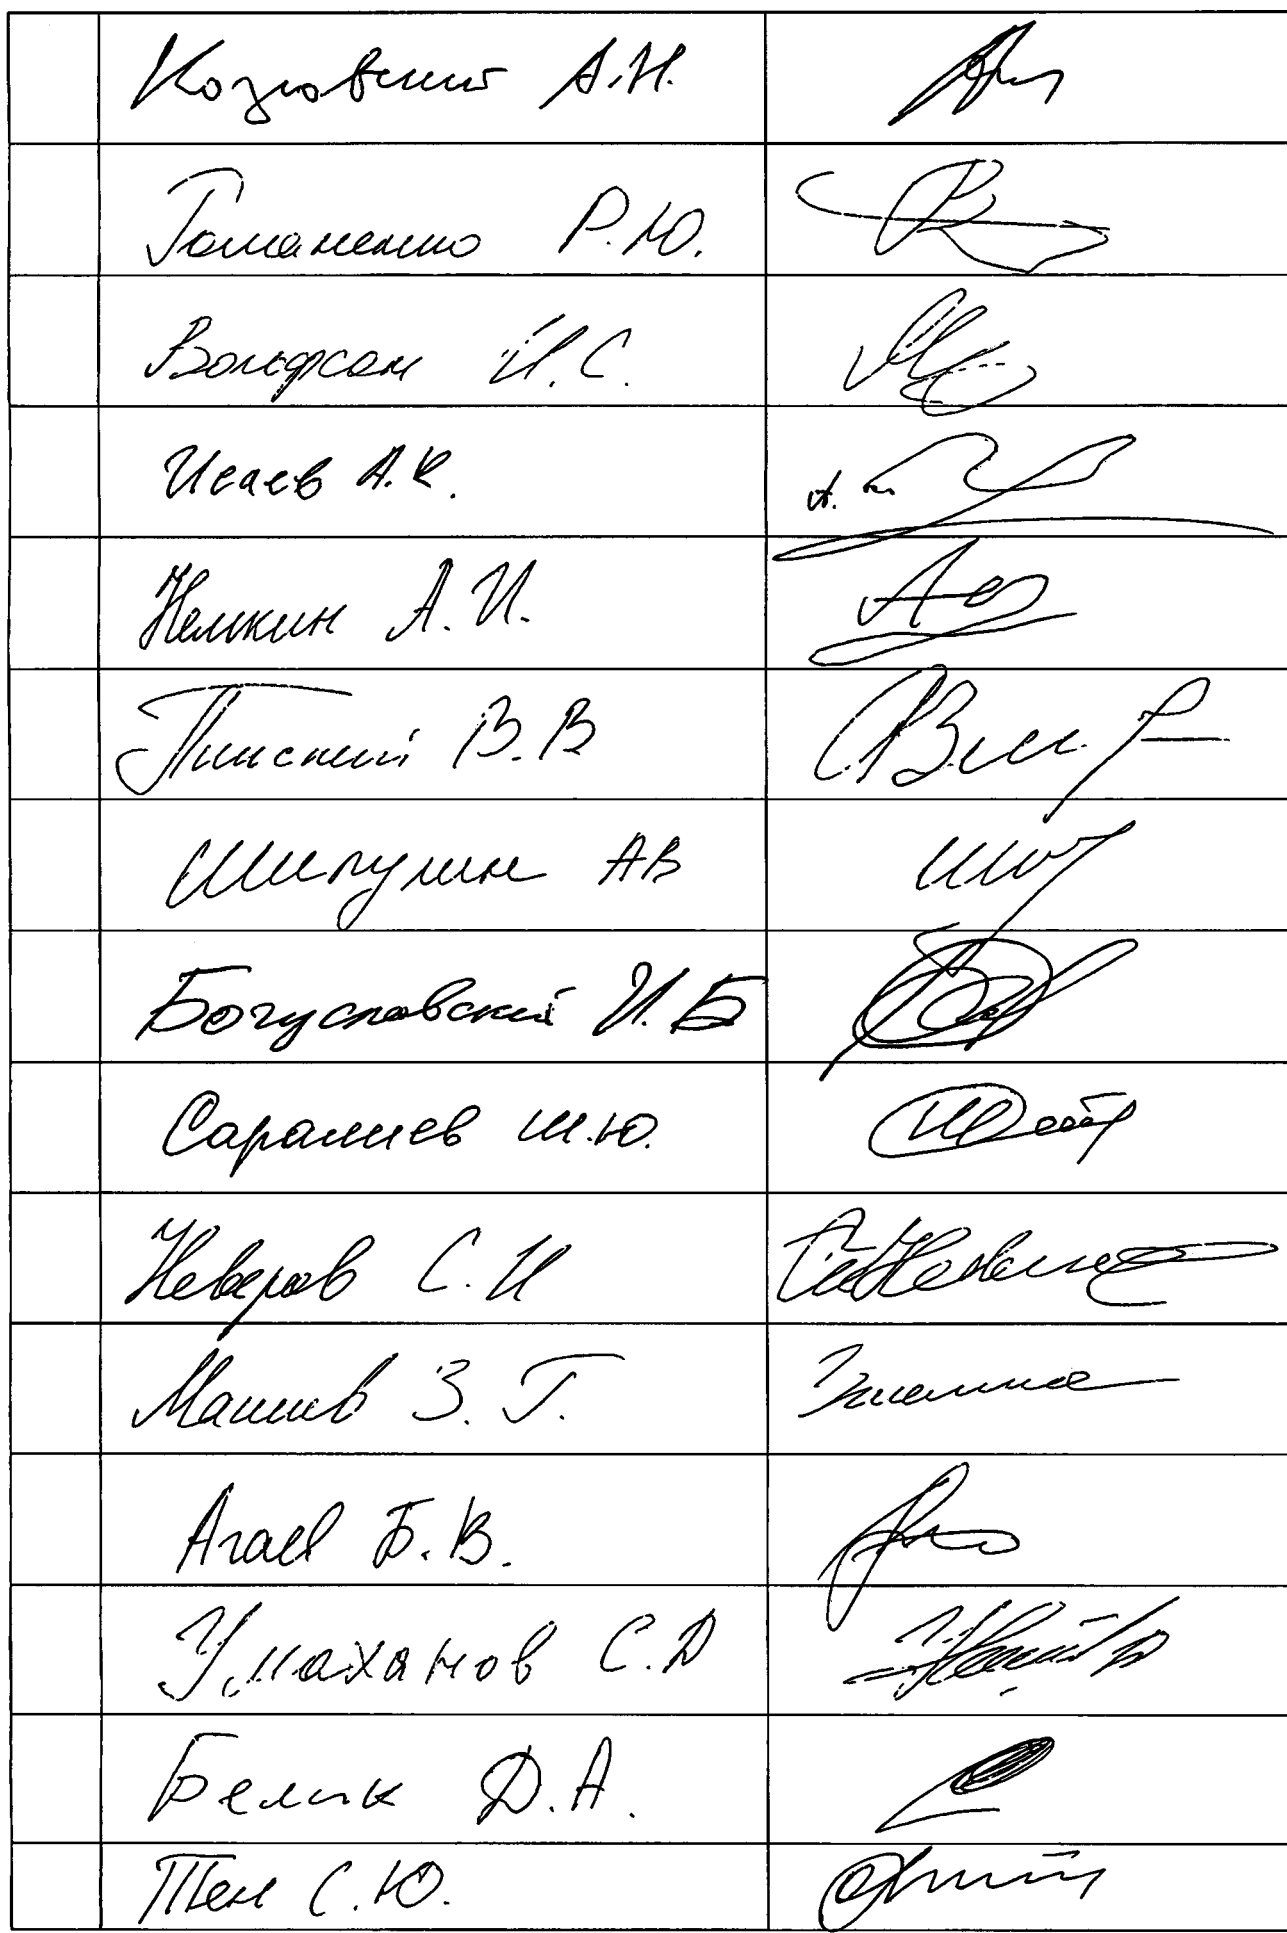 Козловский А.Н.
Романенко Р.Ю.
Вольфсон И.С.
Исаев А.К.
Немкин А.И.
Пинский В.В
Шипулин АВ
Богуславский И.Б
Саралиев Ш.Ю.
Неверов С.И
Мациев З.Г.
Агаев Б.В.
Умаханов С.Д
Белик Д.А.
Тен С.Ю.